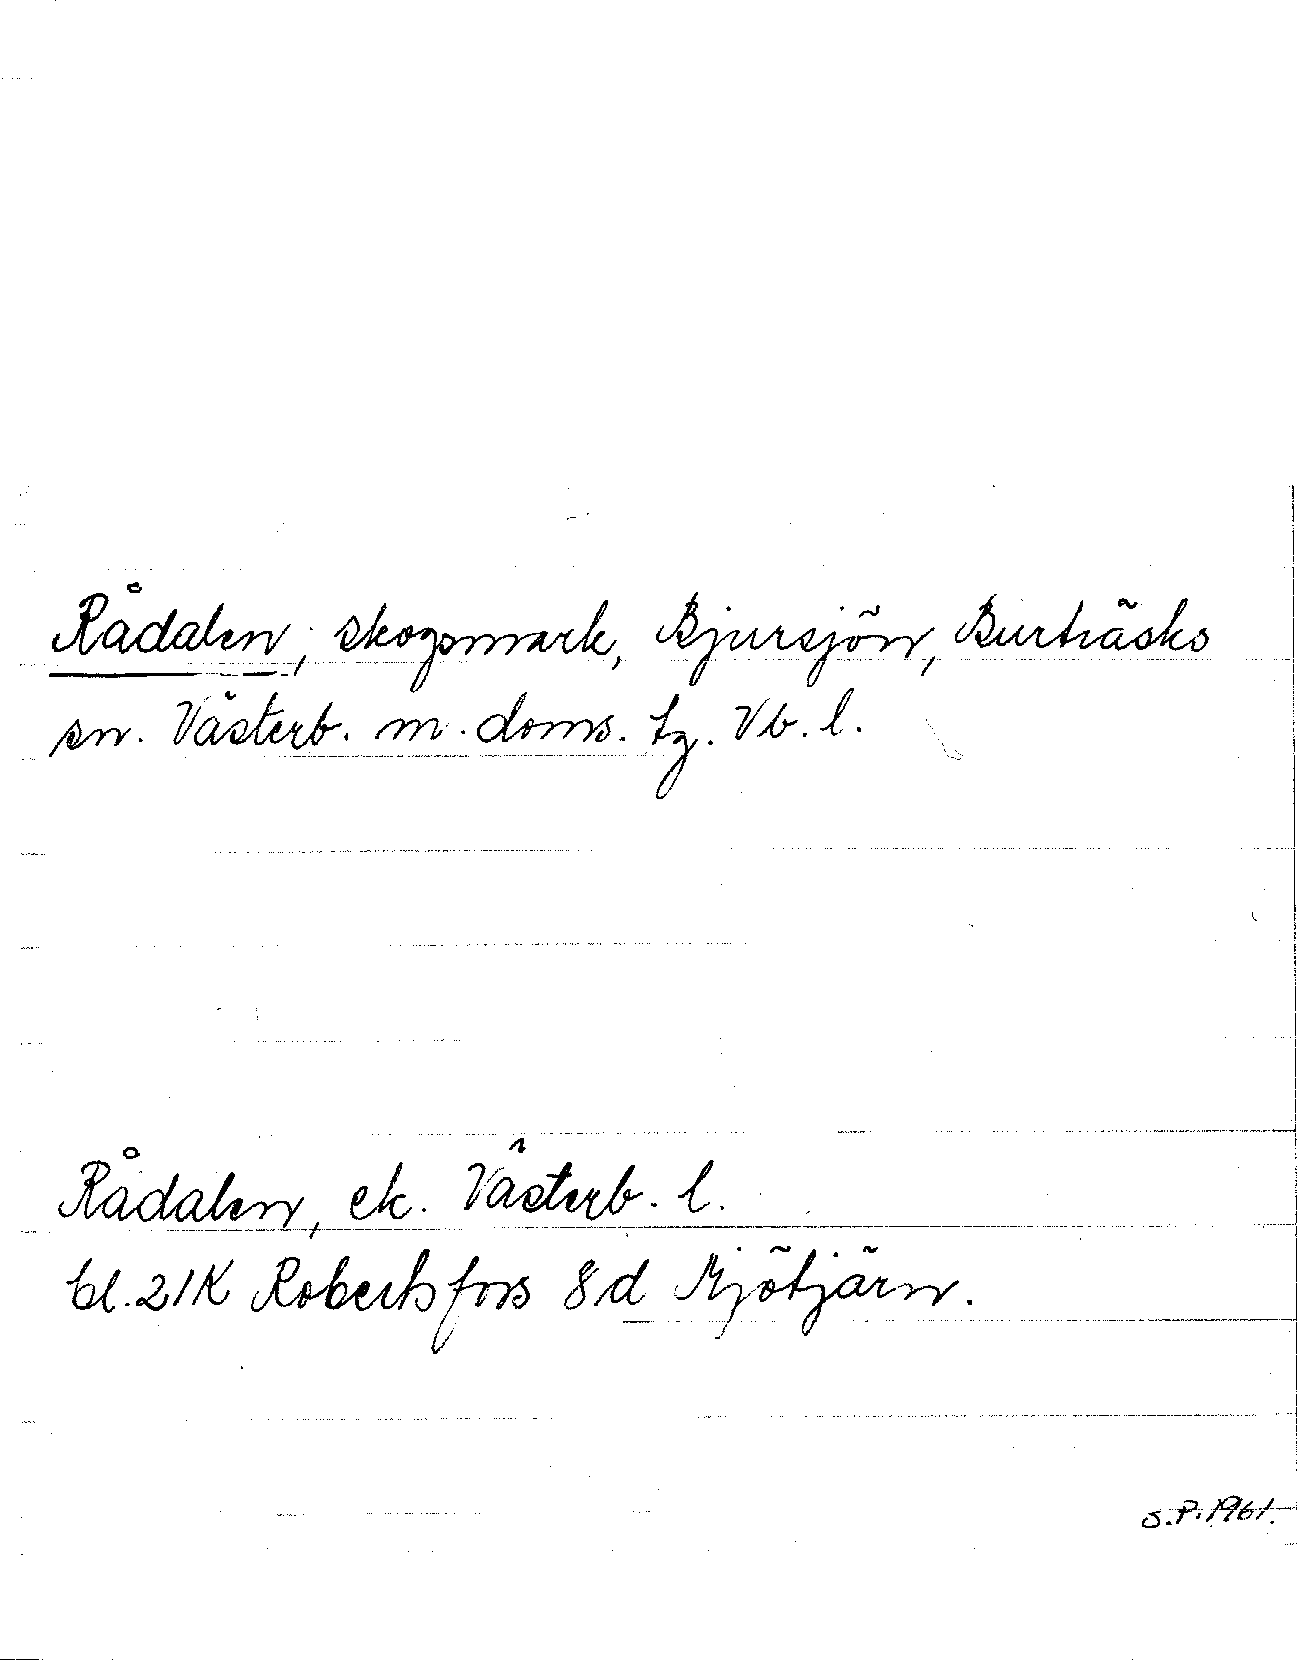 Rådalen, skogsmark, Bjursjön, Burträsks
sn. Västerb. m. doms. tg. Vb. l.
Rådalen, ek. Västerb. l.
bl. 21K Robertsfors 8d Mjötjärn.
S.P. 1961.